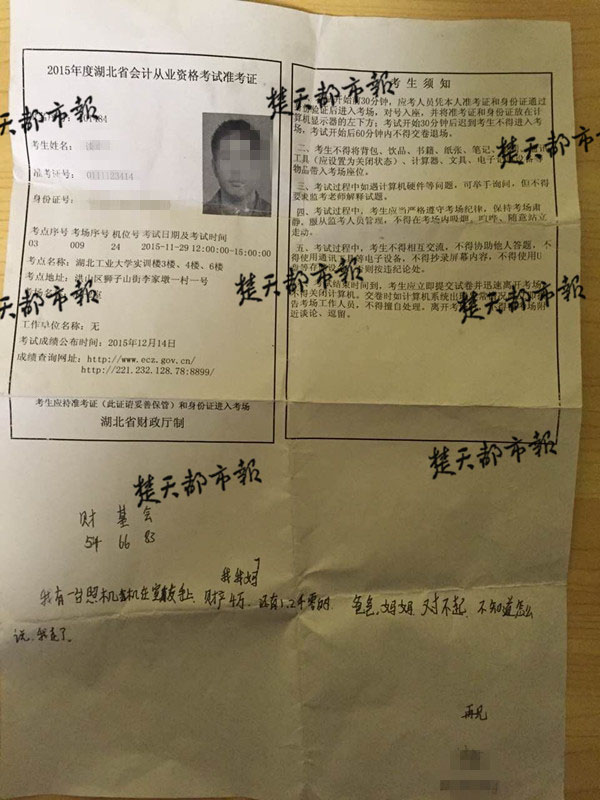 2015年度湖北省会计从业资格考试准考证
考生姓名:
准考证号: 0111123414
身份证号:
考点序号 考场序号 机位号 考试日期及考试时间
03 009 24 2015-11-29 12:00:00-15:00:00
考点名称: 湖北工业大学实训楼3楼、4楼、6楼
考点地址: 洪山区狮子山街李家墩一村一号
工作单位名称: 无
考试成绩公布时间: 2015年12月14日
成绩查询网址: http://www.ecz.gov.cn/
http://221.232.128.78:8899/
考生应持准考证(此证请妥善保管)和身份证进入考场
湖北省财政厅制
考生须知
开始前30分钟，应考人员凭本人准考证和身份证通过
验证后进入考场，对号入座，并将准考证和身份证放在计
算机显示器的左下方；考试开始30分钟后迟到考生不得进入考
场，考试开始后60分钟内不得交卷退场。
二、考生不得将背包、饮品、书籍、纸张、笔记
工具（应设置为关闭状态）、计算器、文具、电子
物品带入考场座位。
三、考试过程中如遇计算机硬件等问题，可举手询问，但不得
要求监考老师解释试题。
四、考试过程中，考生应当严格遵守考场纪律，保持考场肃
静，服从监考人员管理，不得在考场内吸烟、喧哗、随意站立
走动。
五、考试过程中，考生不得相互交流，不得协助他人答题，不
得使用通讯 等电子设备，不得抄录屏幕内容，不得使用U
则按违纪论处。
结束时间到，考生应立即提交试卷并迅速离开考场
不得关闭计算机。交卷时如计算机系统出
告考场工作人员，不得擅自处理。离开考
近谈论、逗留。
楚天都市報
楚天都市報
楚天都市報
楚天都市報
楚天都市報
楚天都市報
楚天都市報
财 基 会
54 66 83
我有一台照相机 在 上, 财产4万, 还有1.2千零的 爸爸, 妈妈, 对不起, 不知道怎么
说, 我走了。
再见